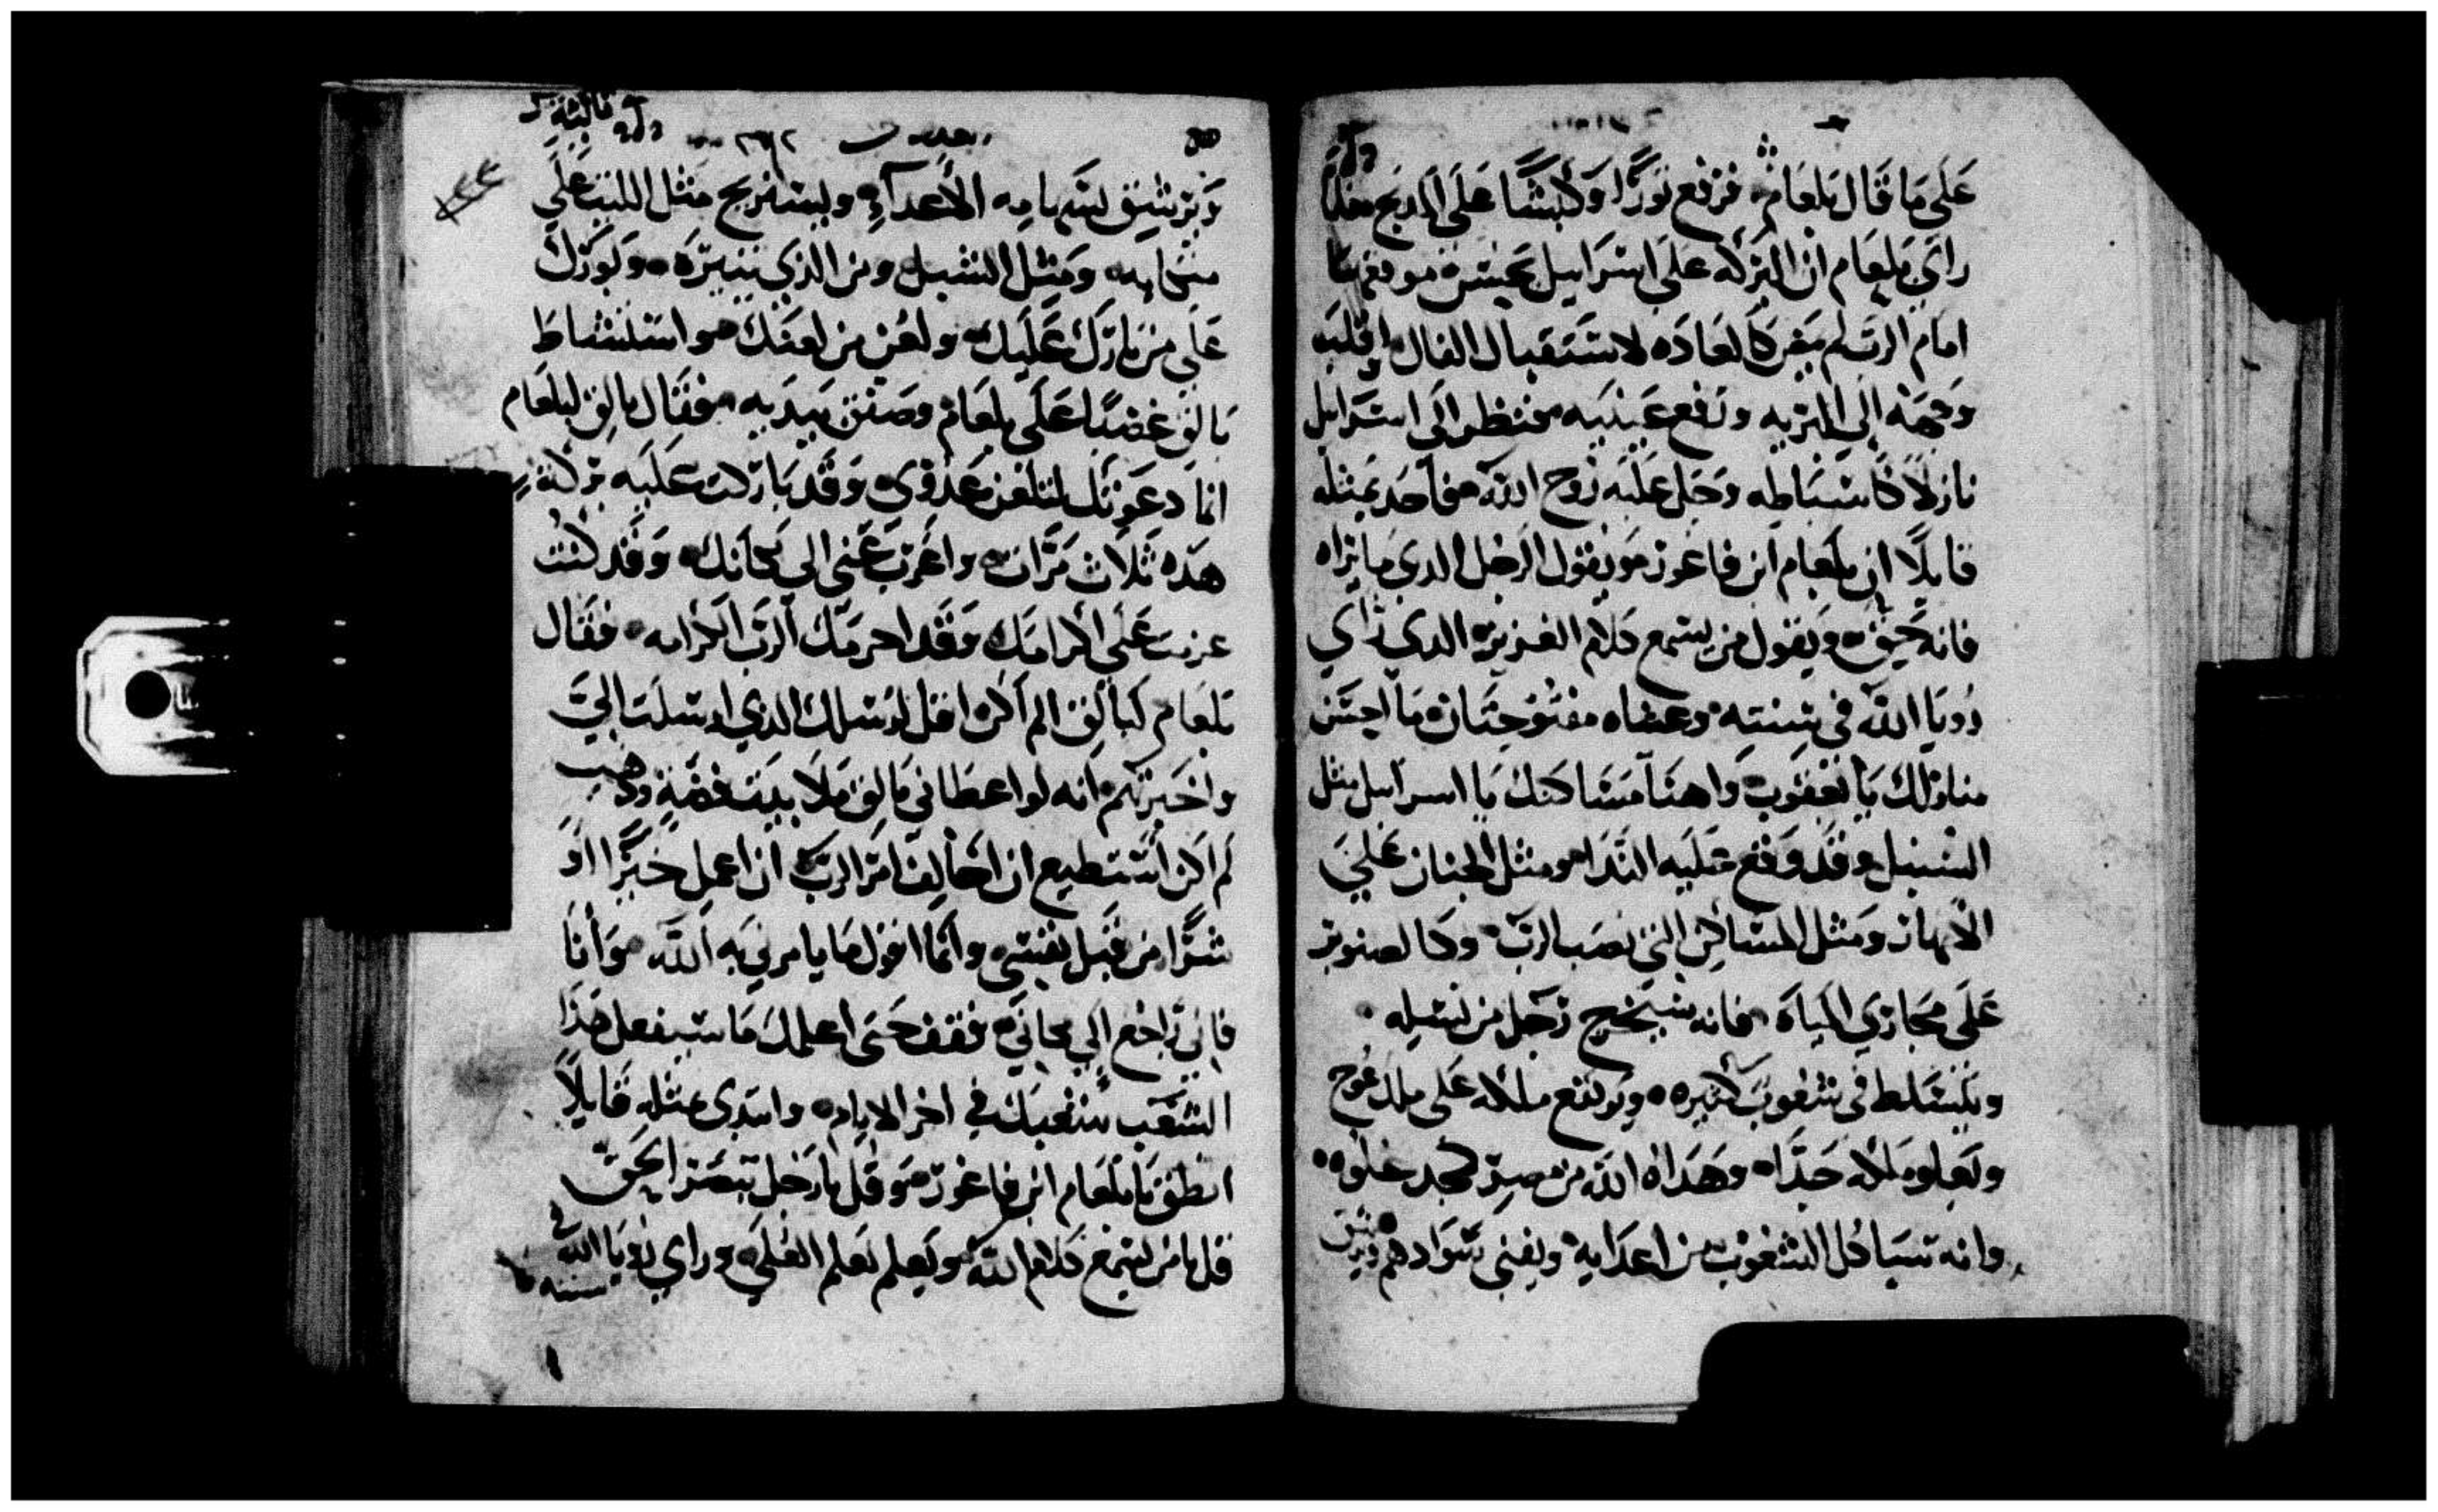 على ما قال بلعام فرفع ثورًا وكبشًا على المدبح فلما
راي بلعام ان البركه على اسرايل بحسن موقعها
امام الرب لم يمض كالعاده لاستقبال الفال اقلب
وجهه الي البريه ورفع عينيه فنظر الى اسرايل
نازلًا كاسباطه وحل عليه روح الله فاخد بمثله
قايلًا ان بلعام ابن فاعور يقول الرجل الدي يراه
فانه حق ويقول من يسمع كلام العزيز الدي راي
رويا الله في سنته وعيناه مفتوحتان ما احسن
منازلك يا يعقوب واهنا مساكنك يا اسرايل مثل
السبيل وقد وقع عليه الندا ومثل الجنان علي
الانهار ومثل المساكن التي نصب الرب وكالصنوبر
على مجاري المياه فانه سيخرج رجل من نسله
ويتسلط في شعوب كثيره ويرتفع ملكه على ملك عوج
ويعلو ملكه جدًا وهداه الله من مصر كمجد علوه
وانه سياكل الشعوب من اعدايه ويفني سوادهم
ويرشق بسهامه الأعدآء ويستريح مثل الليث على
ومثل الشبل ومن الذي يثيره وبورك
على من بارك عليك ولعن من لعنك واستشاط
بالق غضبًا على بلعام وصفق بيديه فقال بالق لبلعام
انما دعوتك لتلعن عدوي وقد باركت عليه بركة
هذه ثلاث مرات واغرب عني الي مكانك وقد كنت
عزمت على اكرامك وقد احرمك الرب الكرامه فقال
بلعام لبالق الم اكن اقل لرسلك الذي ارسلت اليّ
واخبرتهم انه لو اعطاني بالق ملا بيته فضة وذهب
لم اكن استطيع ان اخالف امر الرب ان اعمل خيرًا او
شرًا من قبل نفسي وانما اقول ما يامرني به الله وانا
فاني راجع الي مكاني فقف حتى اعلمك ما سيفعل هذا
الشعب بشعبك في اخر الايام وابتدى بمثله قايلًا
انطق يا بلعام ابن فاعور وقل يا رجل تبصر الحق
قل يا من يسمع كلام الله ويعلم تعلم العلي وراي رويا الله في
سنته